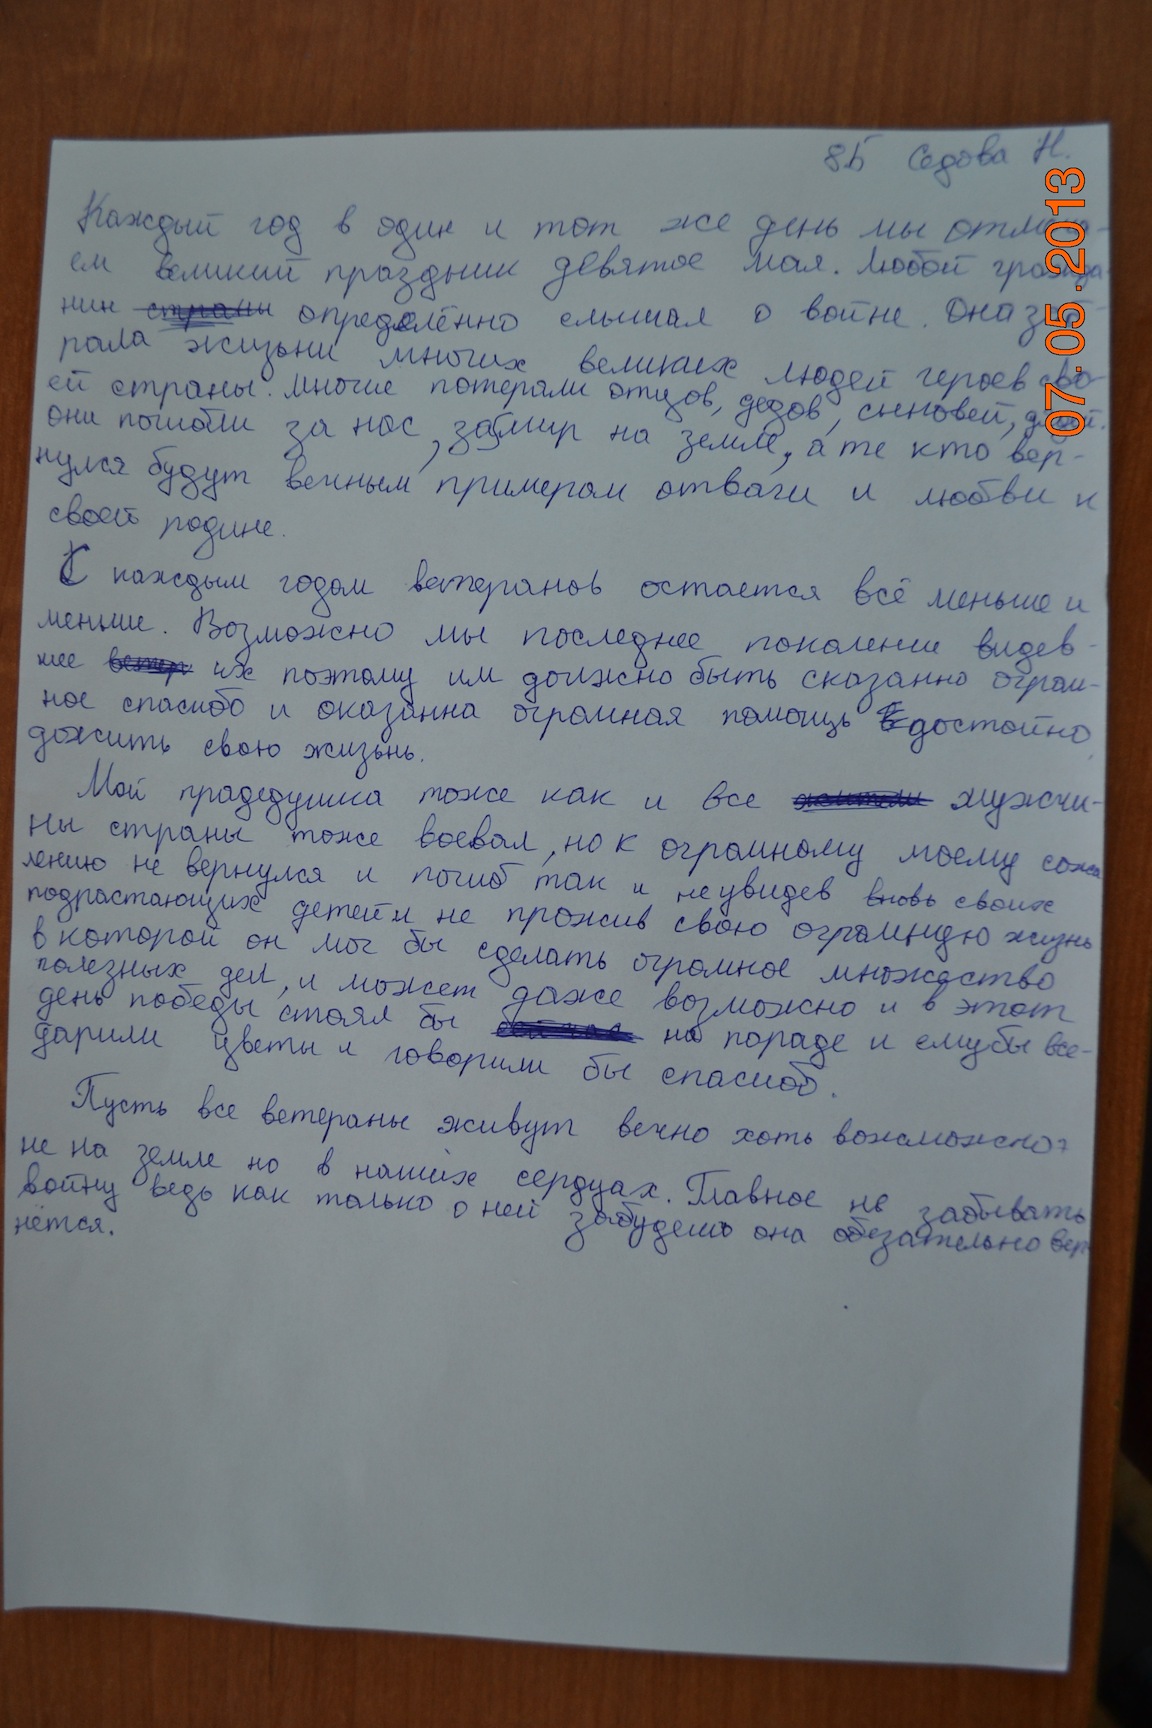 8Б Седова Н.
07.05.2013
Каждый год в один и тот же день мы отмеча-
ем великий праздник девятое мая. Любой гражда-
нин страны определённо слышал о войне. Она заб-
рала жизьни многих великих людей героев сво-
ей страны. Многие потеряли отцов, дедов, сыновей,
они погибли за нас, за мир на земле, а те кто вер-
нулся будут вечным примером отваги и любви к
своей родине.
С каждым годом ветеранов остается всё меньше и
меньше. Возможно мы последнее поколение видев-
шее ветер их поэтому им должно быть сказанно огром-
ное спасибо и оказанна огромная помощь достойно
дожить свою жизьнь.
Мой прадедушка тоже как и все жители мужчи-
ны страны тоже воевал, но к огромному моему сожа
лению не вернулся и погиб так и не увидев вновь своих
подрастающих детей и не прожив свою огромную жизнь
в которой он мог бы сделать огромное множество
полезных дел, и может даже возможно и в этот
день победы стоял бы на пораде и ему бы все-
дарили цветы и говорили бы спасиоб.
Пусть все ветераны живут вечно хоть возможно
не на земле но в наших сердцах. Главное не забывать
войну ведь как только о ней забудешь она обезательно вер
нётся.